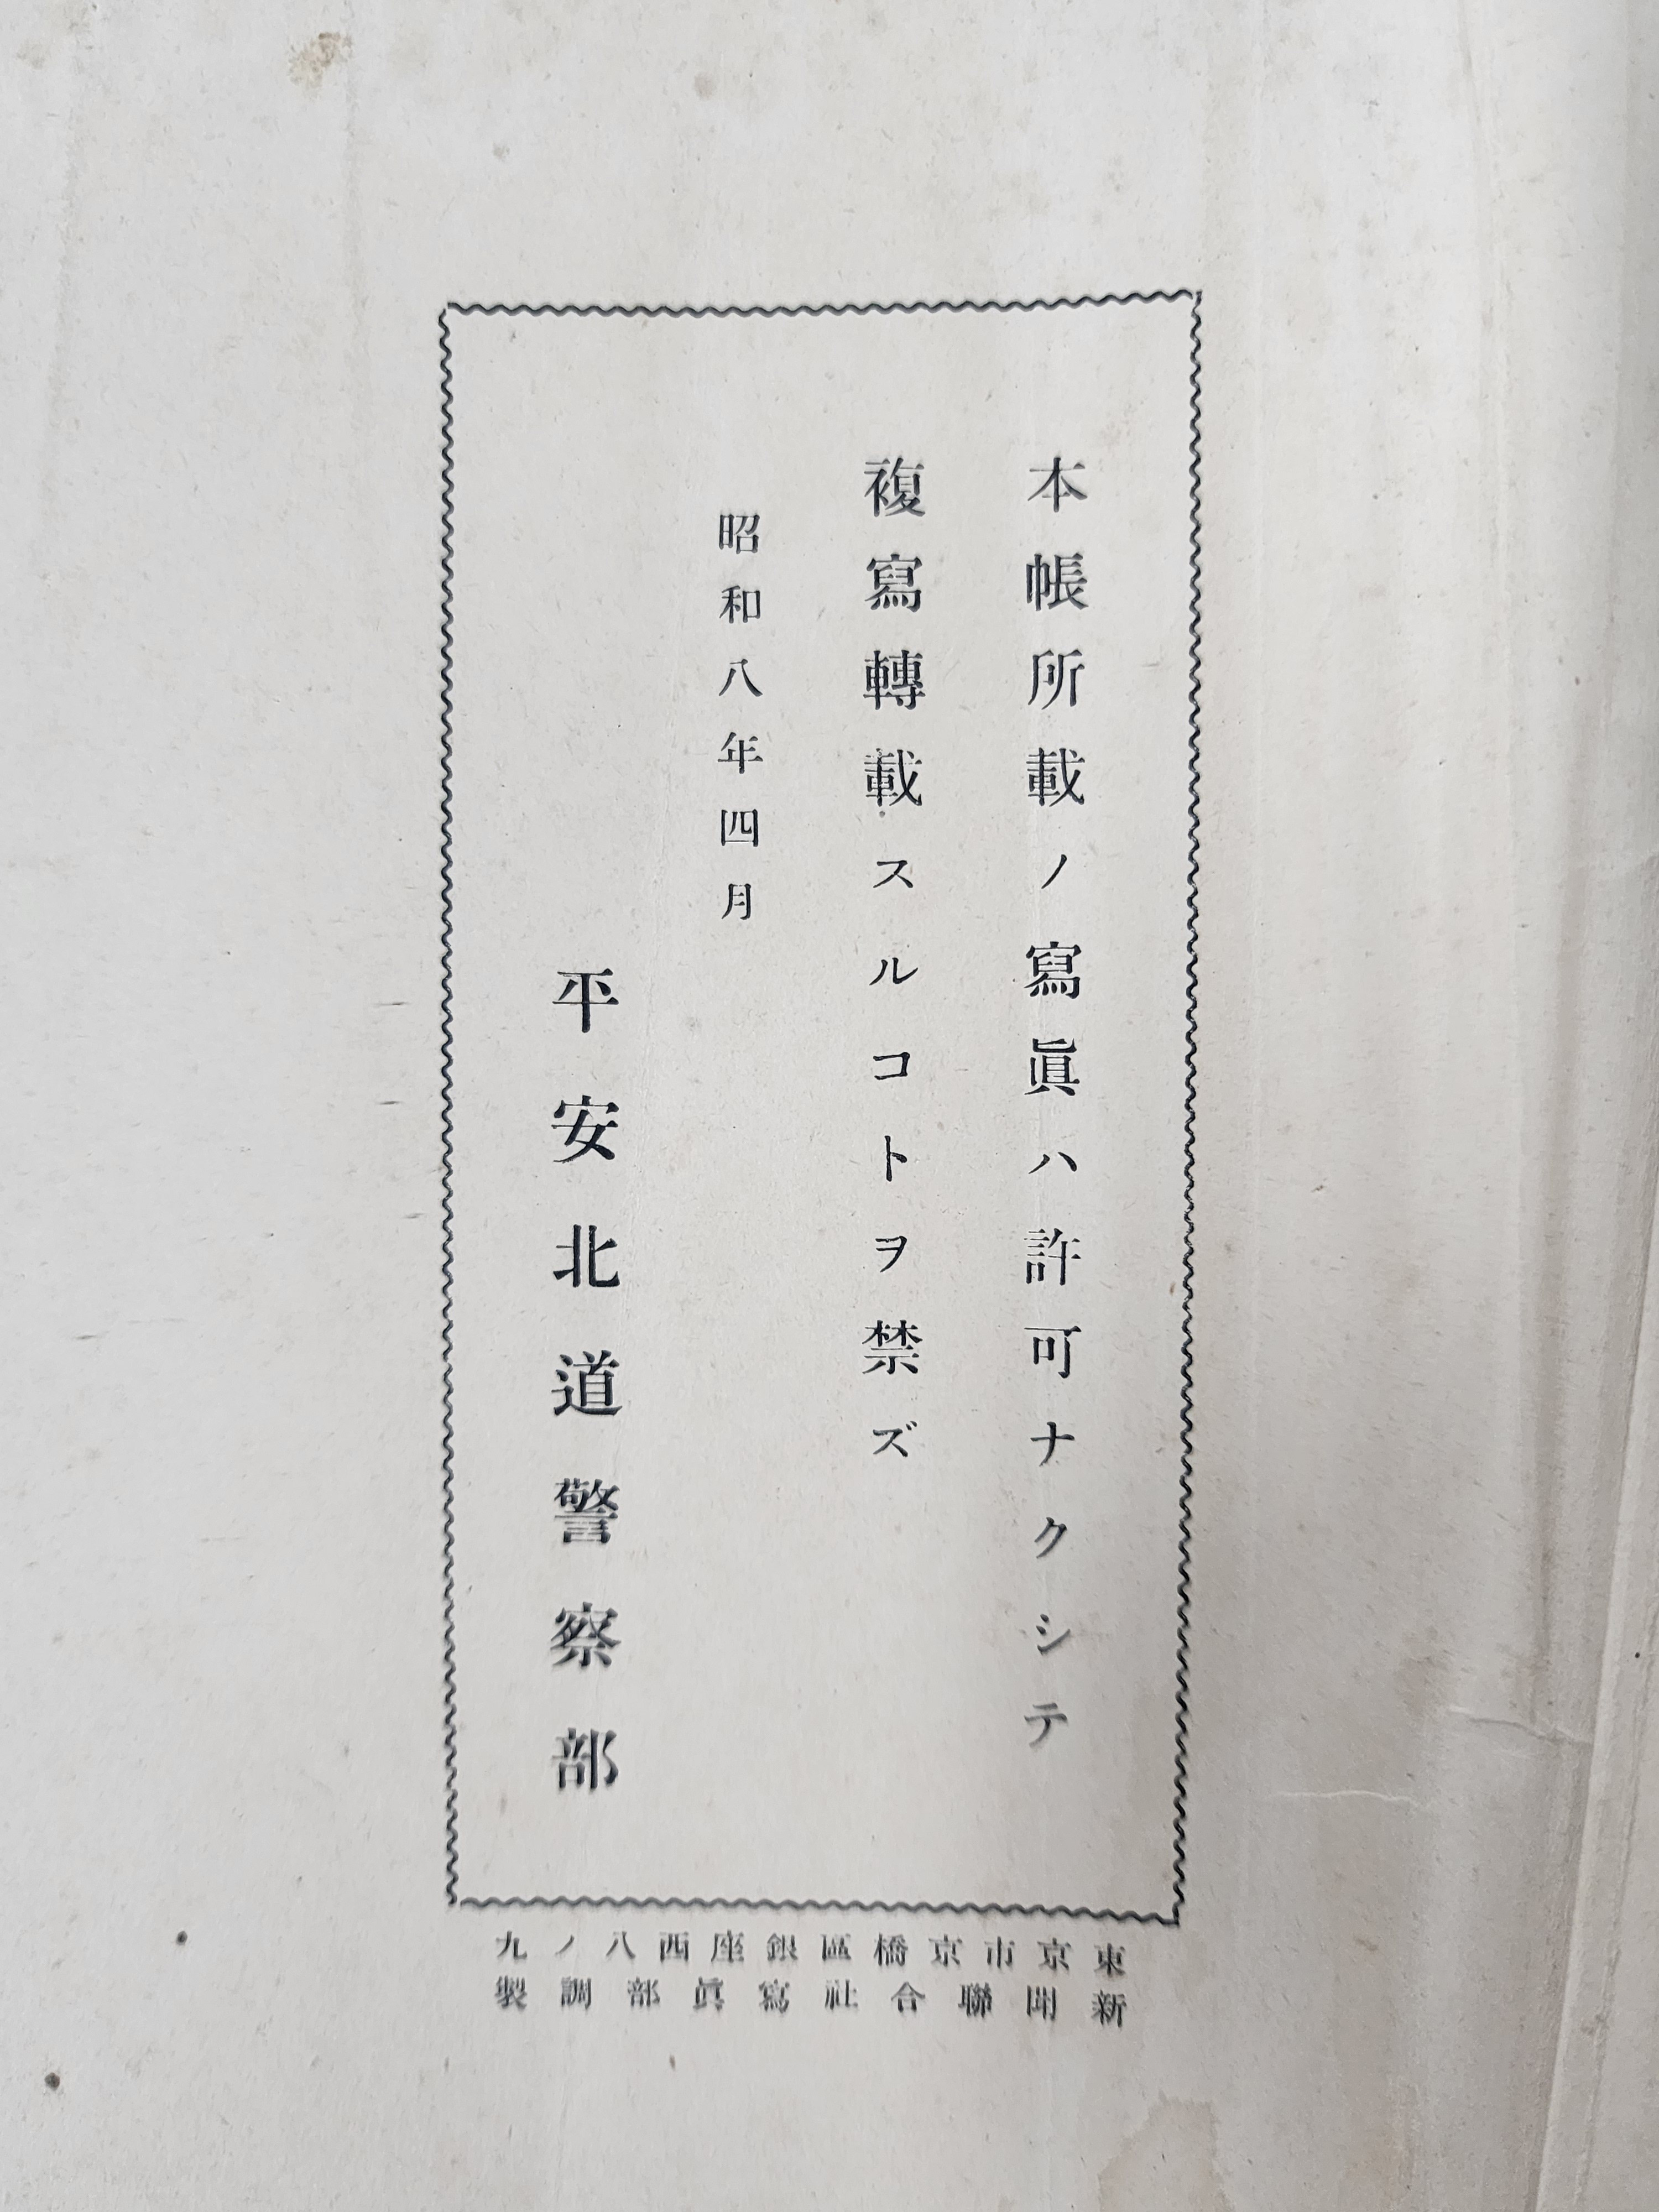 本帳所載ノ寫眞ハ許可ナクシテ
複寫轉載スルコトヲ禁ズ
昭和八年四月
平安北道警察部
東京市京橋區銀座西八ノ九
新聞聯合社寫眞部調製